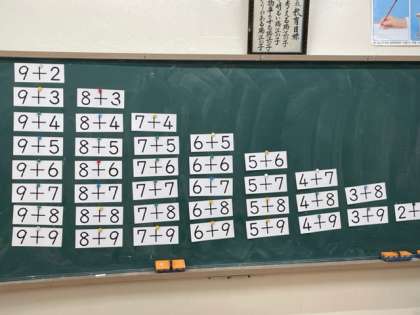 教育目標
9+2
9+3 8+3
9+4 8+4 7+4
9+5 8+5 7+5 6+5
9+6 8+6 7+6 6+6 5+6
9+7 8+7 7+7 6+7 5+7 4+7
9+8 8+8 7+8 6+8 5+8 4+8 3+8
9+9 8+9 7+9 6+9 5+9 4+9 3+9 2+